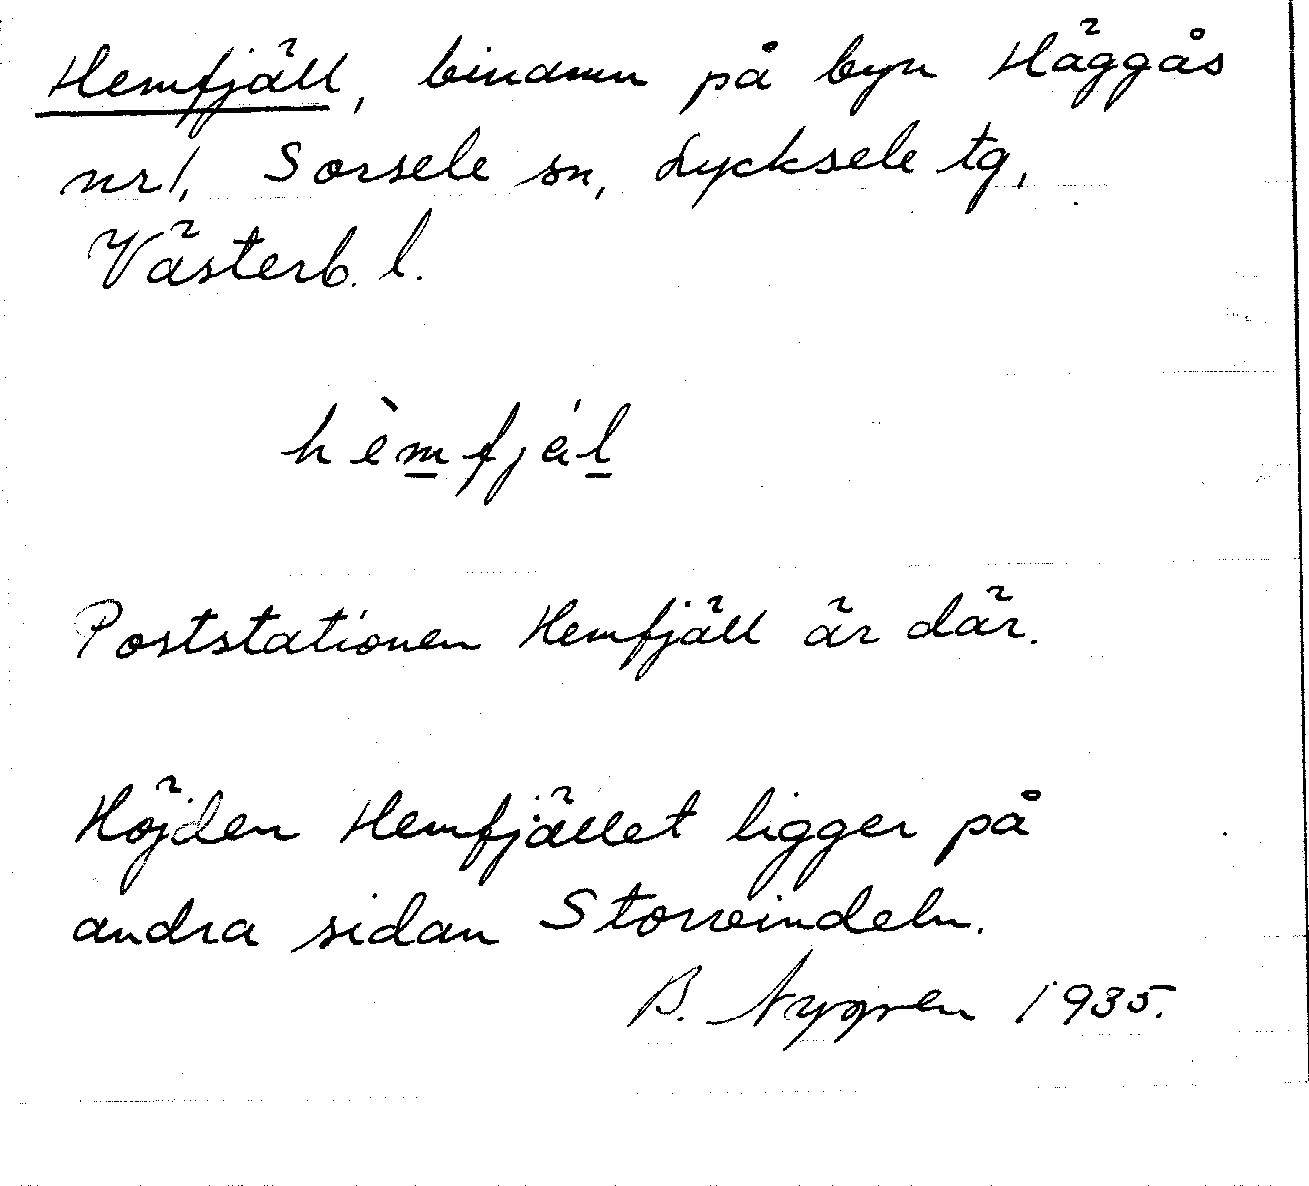 Hemfjäll, binamn på byn Häggås
nr 1, Sorsele sn, Lycksele tg,
Västerb. l.
hèmfjál
Poststationen Hemfjäll är där.
Höjden Hemfjället ligger på
andra sidan Storvindeln.
B. Nygren 1935.